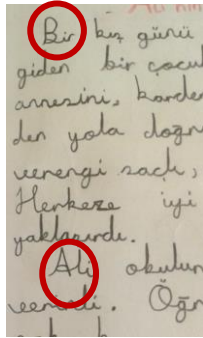 Bir kış günü
giden bir çocu
annesini, karde
den yola doğr
verengi saçlı,
Herkeze iyi
yaklaşırdı.
Ali okulun
. Öğr